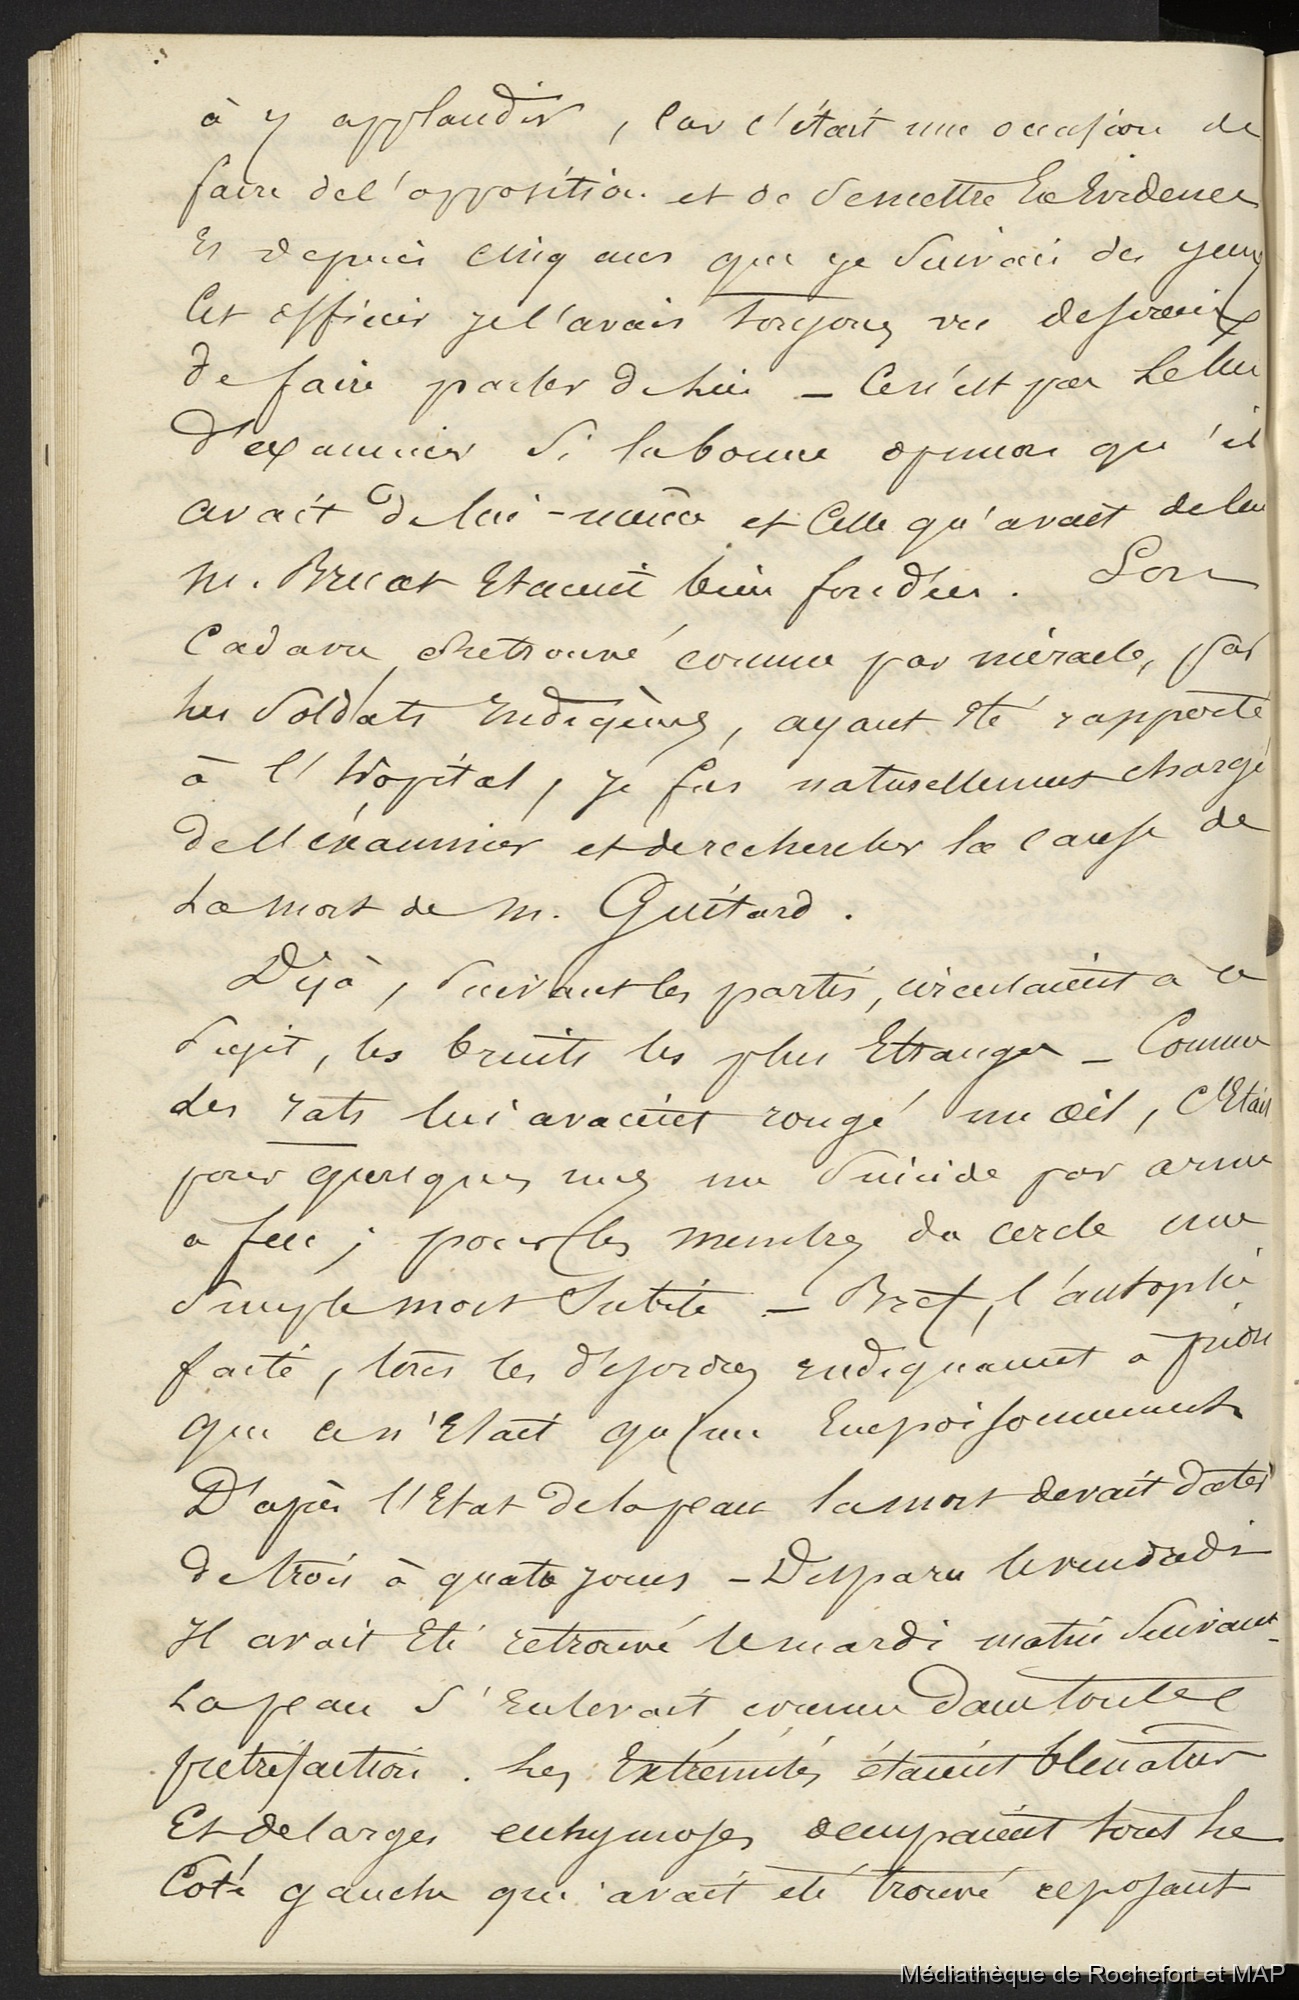 à y applaudir, car c'était une occasion de
faire de l'opposition et de se mettre En Evidence
Et depuis cinq ans que je suivais des yeux
Cet officier je l'avais toujours vu désireux
de faire parler de lui – Ce n'est pas Le lieu
d'examiner si la bonne opinion qu'il
avait de lui-même et Celle qu'avait de lui
M. Bruat Etaient bien fondées. Son
Cadavre, retrouvé comme par miracle, par
les soldats Indigènes, ayant été rapporté
à l'Hopital, je fus naturellement chargé
de l'examiner et de rechercher la cause de
La mort de M. Guitard.
Déjà, suivant les partis, circulaient à ce
sujet, les bruits les plus Etranges – Comme
des rats lui avaient rongé un œil, C'Etait
pour quelques uns un suicide par arme
a feu ; pour les membres du cercle une
simple mort subite – Bref, l'autopsie
faite, tous les désordres indiquaient à priori
que ce n'Etait qu'un Empoisonnement
D'après l'Etat de la peau la mort devait dater
de trois à quatre jours – Disparu le vendredi
Il avait Eté retrouvé le mardi matin suivant –
La peau s'Enlevait comme dans toute
putréfaction. Les Extrémités étaient bleuatres
Et de larges ecchymoses occupaient tout Le
Coté gauche qui avait été trouvé reposant
Médiathèque de Rochefort et MAP